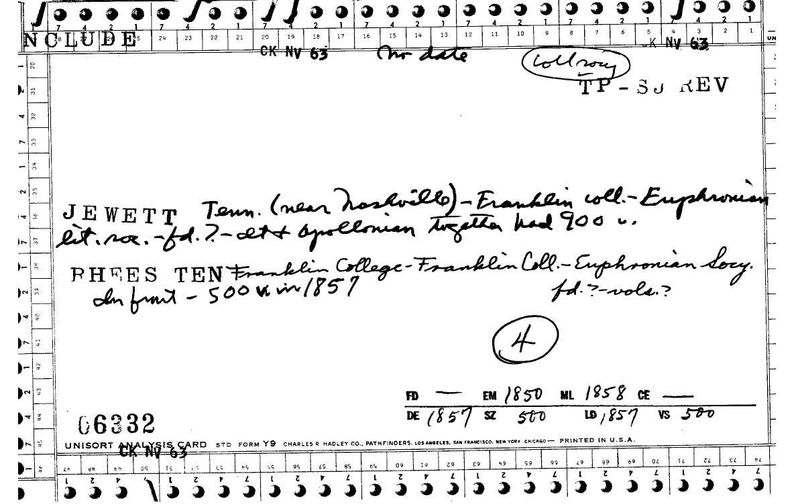 NCLUDE
CK NV 63 no date coll socy CK NV 63
TP - SJ REV
JEWETT Tenn. (near Nashville) - Franklin coll. - Euphronian
lit. soc. - fd. ? - it & Apollonian together had 900 v.
RHEES TEN Franklin College - Franklin Coll. - Euphronian Socy.
In print - 500 v. in 1857 fd. ? - vols. ?
4
FD — EM 1850 ML 1858 CE —
DE 1857 SZ 500 LD 1857 VS 500
06332
UNISORT ANALYSIS CARD STD FORM Y9 CHARLES R HADLEY CO., PATHFINDERS, LOS ANGELES, SAN FRANCISCO, NEW YORK CHICAGO — PRINTED IN U.S.A.
CK NV 63